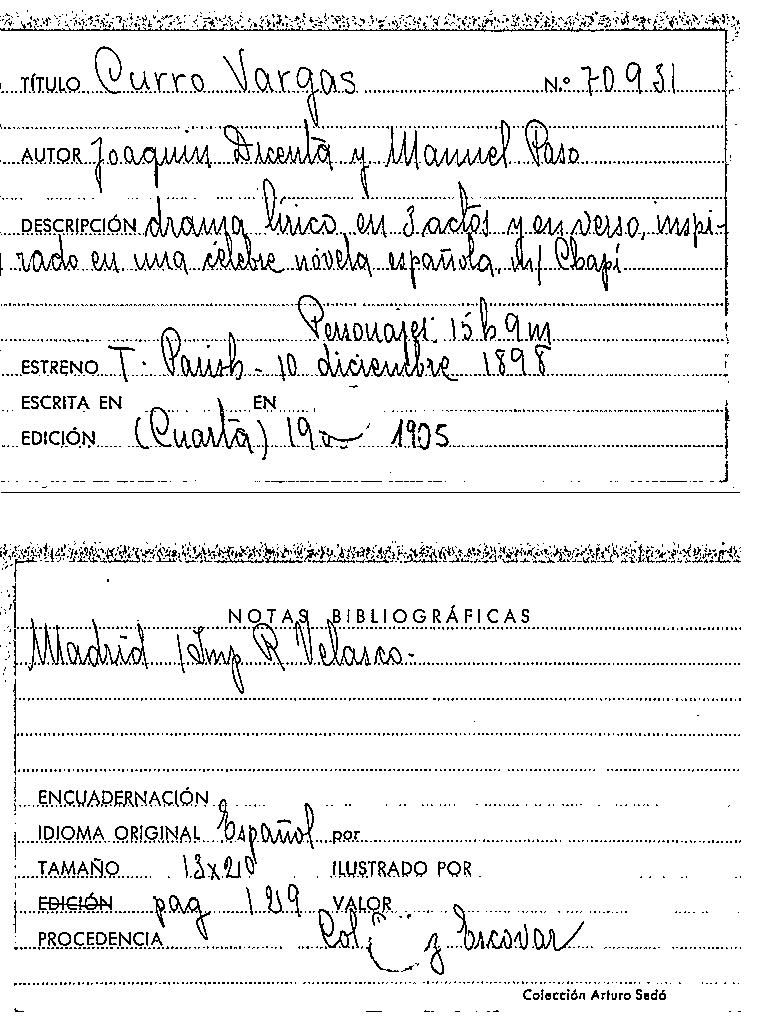 TÍTULO Curro Vargas N.º 70931
AUTOR Joaquin Dicenta y Manuel Paso
DESCRIPCIÓN drama lírico en 3 actos y en verso, inspi-
rado en una célebre novela española. m/ Chapí
Personajes: 15 h 9 m
ESTRENO T. Parish - 10 diciembre 1898
ESCRITA EN EN
EDICIÓN (Cuarta) 1905
NOTAS BIBLIOGRÁFICAS
Madrid / Imp R Velasco.
ENCUADERNACIÓN
IDIOMA ORIGINAL Español por
TAMAÑO 13x20 ILUSTRADO POR
EDICIÓN pag 129 VALOR
PROCEDENCIA Col y Escovar
Colección Arturo Sedó